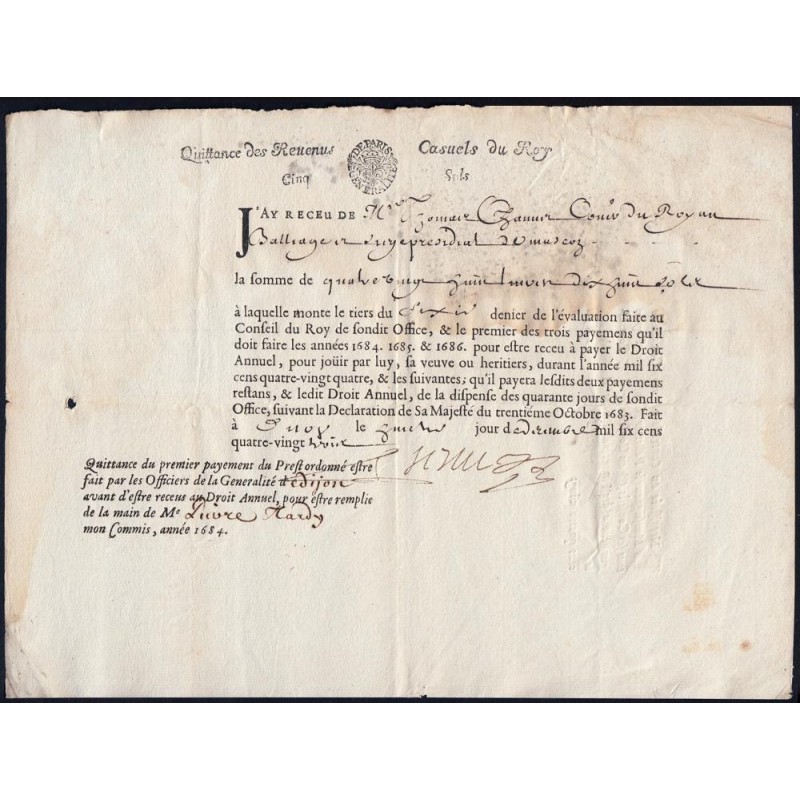 Quittance des Reuenus Casuels du Roy
DE PARIS GENERALITE
Cinq Sols
J'AY RECEU DE Mr Thomas Cons du Roy au
Balliage et siege presidial de
la somme de quatre vingt huit livres dix huit solz
à laquelle monte le tiers du denier de l'évaluation faite au
Conseil du Roy de sondit Office, & le premier des trois payemens qu'il
doit faire les années 1684. 1685. & 1686. pour estre receu à payer le Droit
Annuel, pour joüir par luy, sa veuve ou heritiers, durant l'année mil six
cens quatre-vingt quatre, & les suivantes; qu'il payera lesdits deux payemens
restans, & ledit Droit Annuel, de la dispense des quarante jours de sondit
Office, suivant la Declaration de Sa Majesté du trentiéme Octobre 1683. Fait
à le jour de decembre mil six cens
quatre-vingt trois
Quittance du premier payement du Prest ordonné estre
fait par les Officiers de la Generalité de dijon
avant d'estre receus au Droit Annuel, pour estre remplie
de la main de Me Hardy
mon Commis, année 1684.